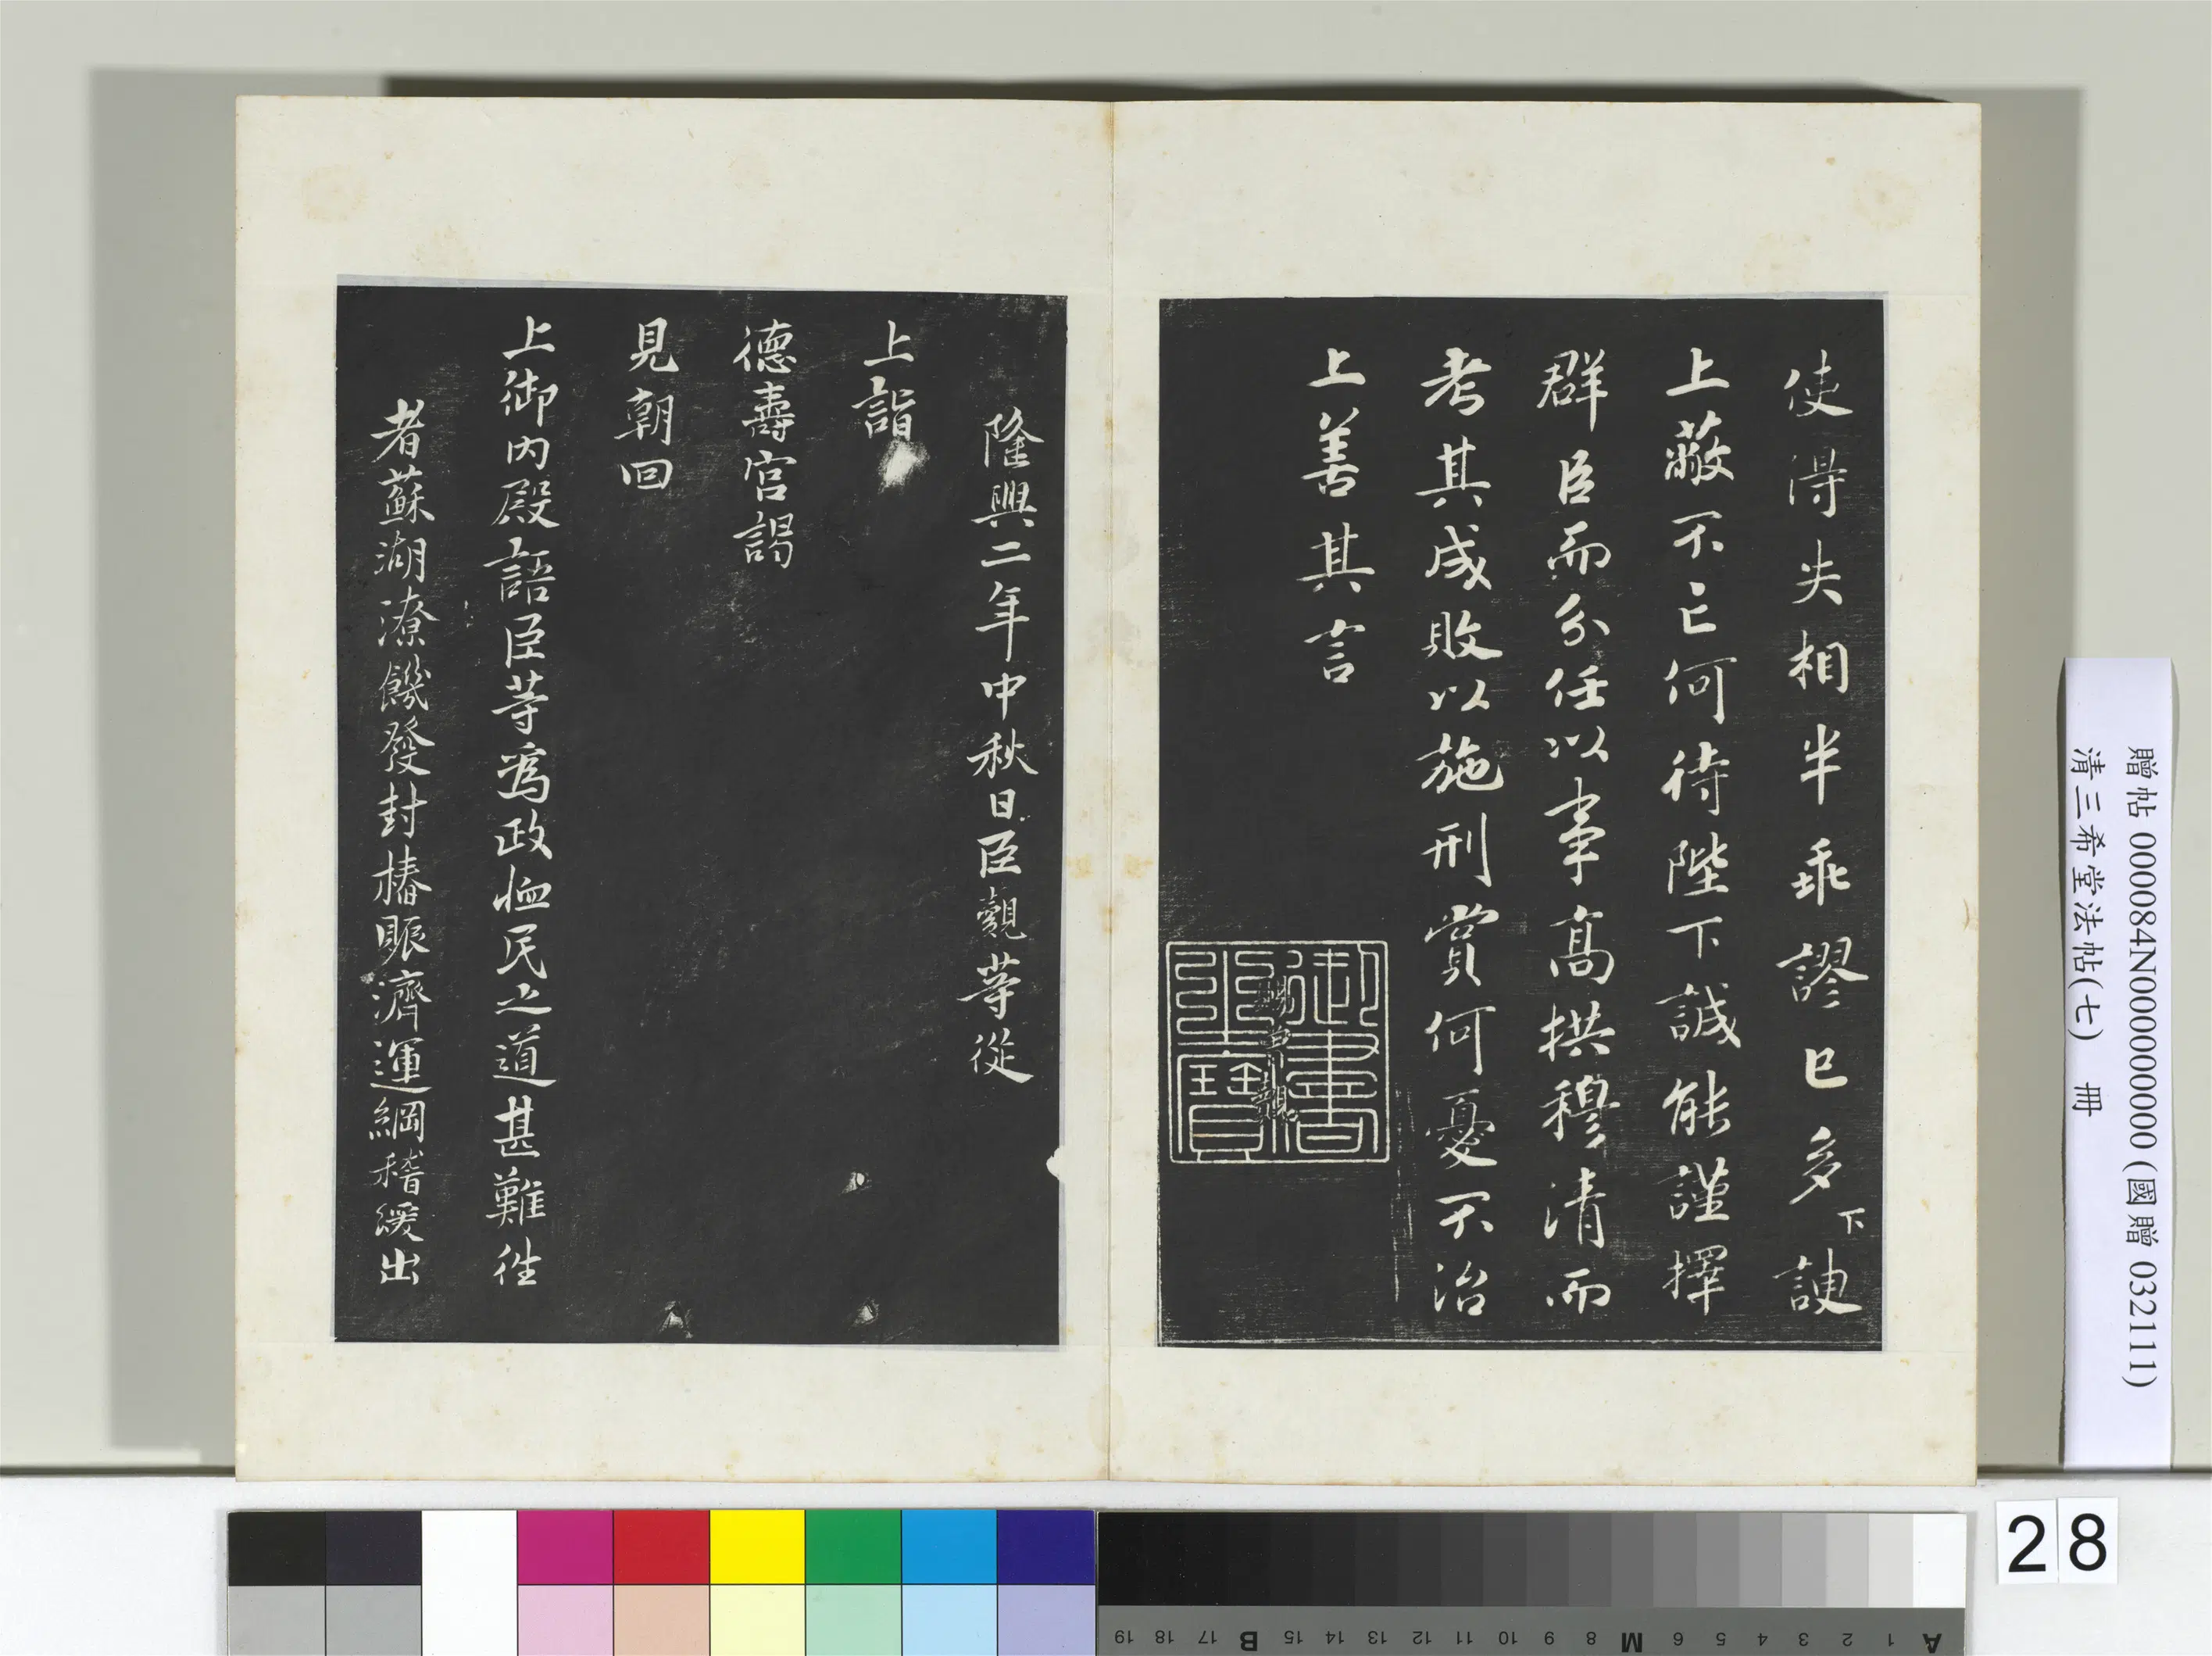 使得失相半乖謬已多下諛
上蔽不亡何待陛下誠能謹擇
群臣而分任以事高拱穆清而
考其成敗以施刑賞何憂不治
上善其言
御書
之寶
賜曾覿
隆興二年中秋日臣覿等從
上詣
德壽宮謁
見朝回
上御內殿語臣等為政恤民之道甚難徃
者蘇湖潦饑發封樁賑濟運綱稽緩出
贈帖 000084N000000000 (國贈 032111)
清三希堂法帖(七) 冊
28
A 1 2 3 4 5 6 M 8 9 10 11 12 13 14 15 B 17 18 19